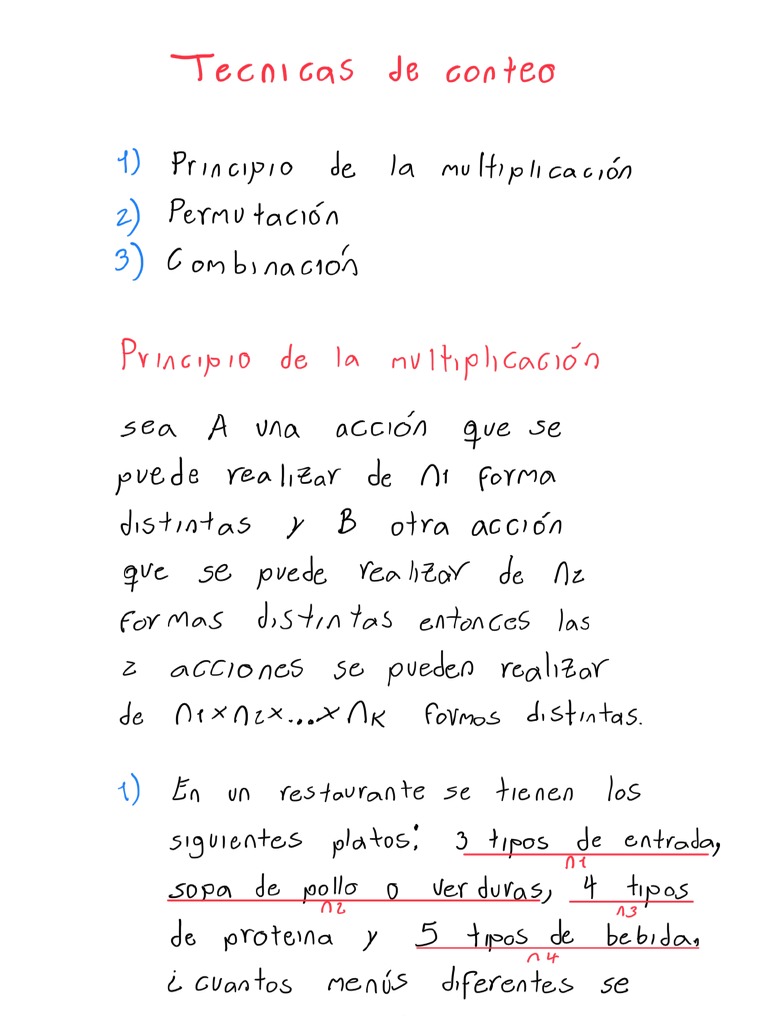 Tecnicas de conteo
1) Principio de la multiplicación
2) Permutación
3) Combinación
Principio de la multiplicación
sea A una acción que se
puede realizar de n1 forma
distintas y B otra acción
que se puede realizar de n2
formas distintas entonces las
2 acciones se pueden realizar
de n1×n2×...×nK formos distintas.
1) En un restaurante se tienen los
siguientes platos: 3 tipos de entrada,
n1
sopa de pollo o verduras, 4 tipos
n2 n3
de proteina y 5 tipos de bebida,
n4
¿cuantos menús diferentes se